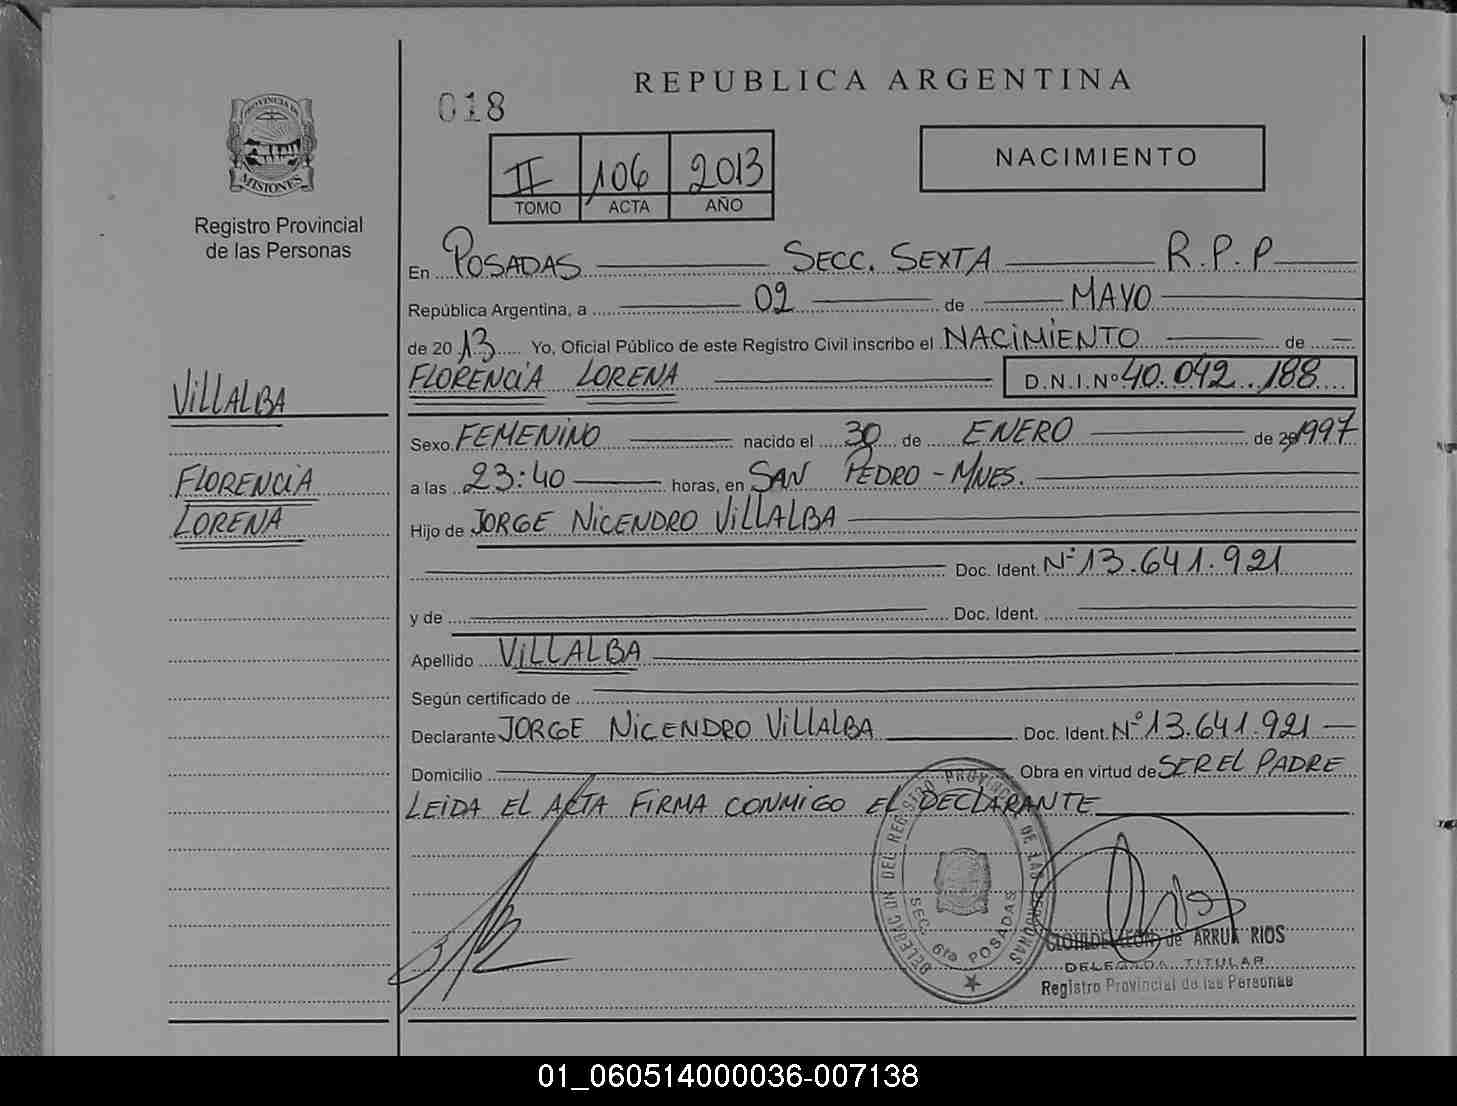 REPUBLICA ARGENTINA
018
PROVINCIA DE
MISIONES
Registro Provincial
de las Personas
NACIMIENTO
II 106 2013
TOMO ACTA AÑO
En POSADAS SECC. SEXTA R.P.P
República Argentina, a 02 de MAYO
de 2013 Yo, Oficial Público de este Registro Civil inscribo el NACIMIENTO de
FLORENCIA LORENA D.N.I.Nº 40.042.188
VILLALBA
Sexo FEMENINO nacido el 30 de ENERO de 1997
FLORENCIA
a las 23:40 horas, en SAN PEDRO - MNES.
LORENA
Hijo de JORGE NICENDRO VILLALBA
Doc. Ident. Nº 13.641.921
y de Doc. Ident.
Apellido VILLALBA
Según certificado de
Declarante JORGE NICENDRO VILLALBA Doc. Ident. Nº 13.641.921
Domicilio Obra en virtud de SER EL PADRE
LEIDA EL ACTA FIRMA CONMIGO EL DECLARANTE
DEL REGISTRO DE LAS PERSONAS
SEC. 6ta POSADAS
de ARRUA RIOS
DELEGADA TITULAR
Registro Provincial de las Personas
01_060514000036-007138